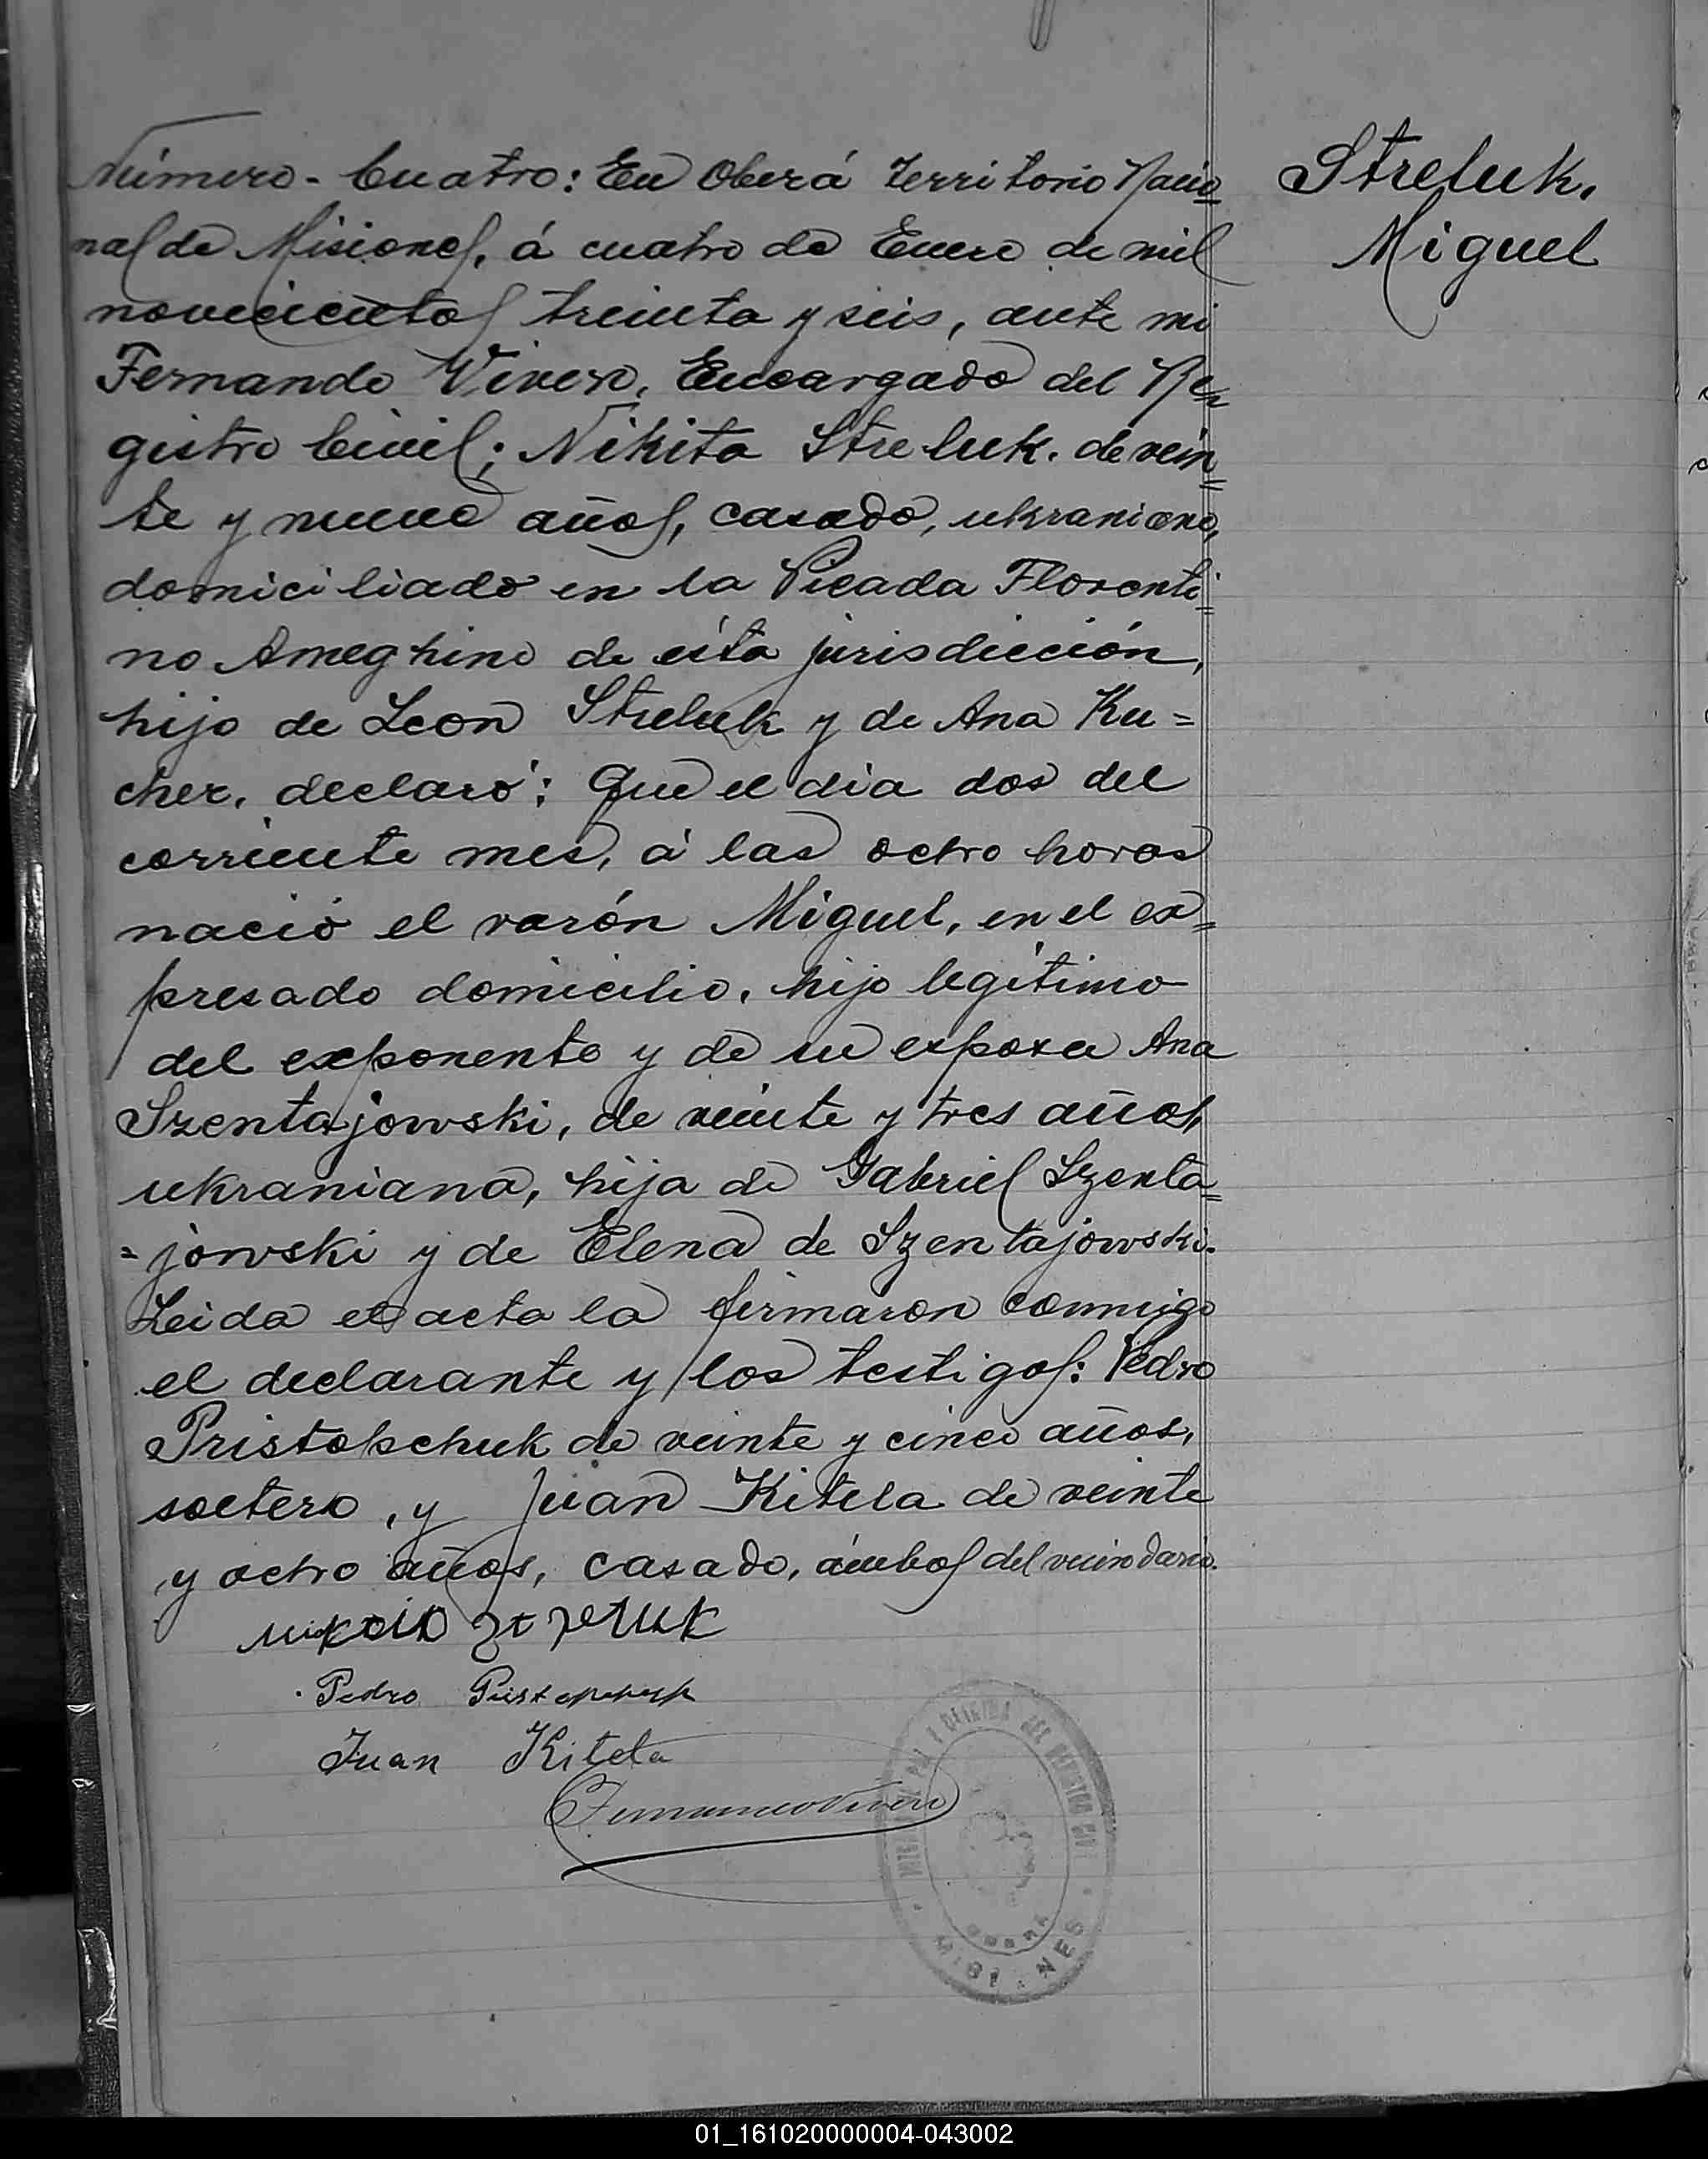 Número - Cuatro: En Oberá Territorio Nacio
nal de Misiones, á cuatro de Enero de mil
novecientos treinta y seis, ante mi
Fernando Vivero, Encargado del Re=
gistro Civil; Nikita Streluk. de vein=
te y nueve años, casado, ukraniano,
domiciliado en la Picada Florenti=
no Ameghino de ésta jurisdicción,
hijo de Leon Streluk y de Ana Ku=
cher, declaró: Que el dia dos del
corriente mes, á las ocho horas
nació el varón Miguel, en el ex=
presado domicilio, hijo legítimo
del exponente y de su esposa Ana
Szentajowski, de veinte y tres años,
ukraniana, hija de Gabriel Szenta=
=jowski y de Elena de Szentajowski.
Leida el acta la firmaron conmigo
el declarante y los testigos: Pedro
Pristopchuk de veinte y cinco años,
soltero, y Juan Kitela de veinte
y ocho años, casado, ámbos del vecindario.
Pedro
Juan Kitela
Streluk,
Miguel
MISIONES
01_161020000004-043002